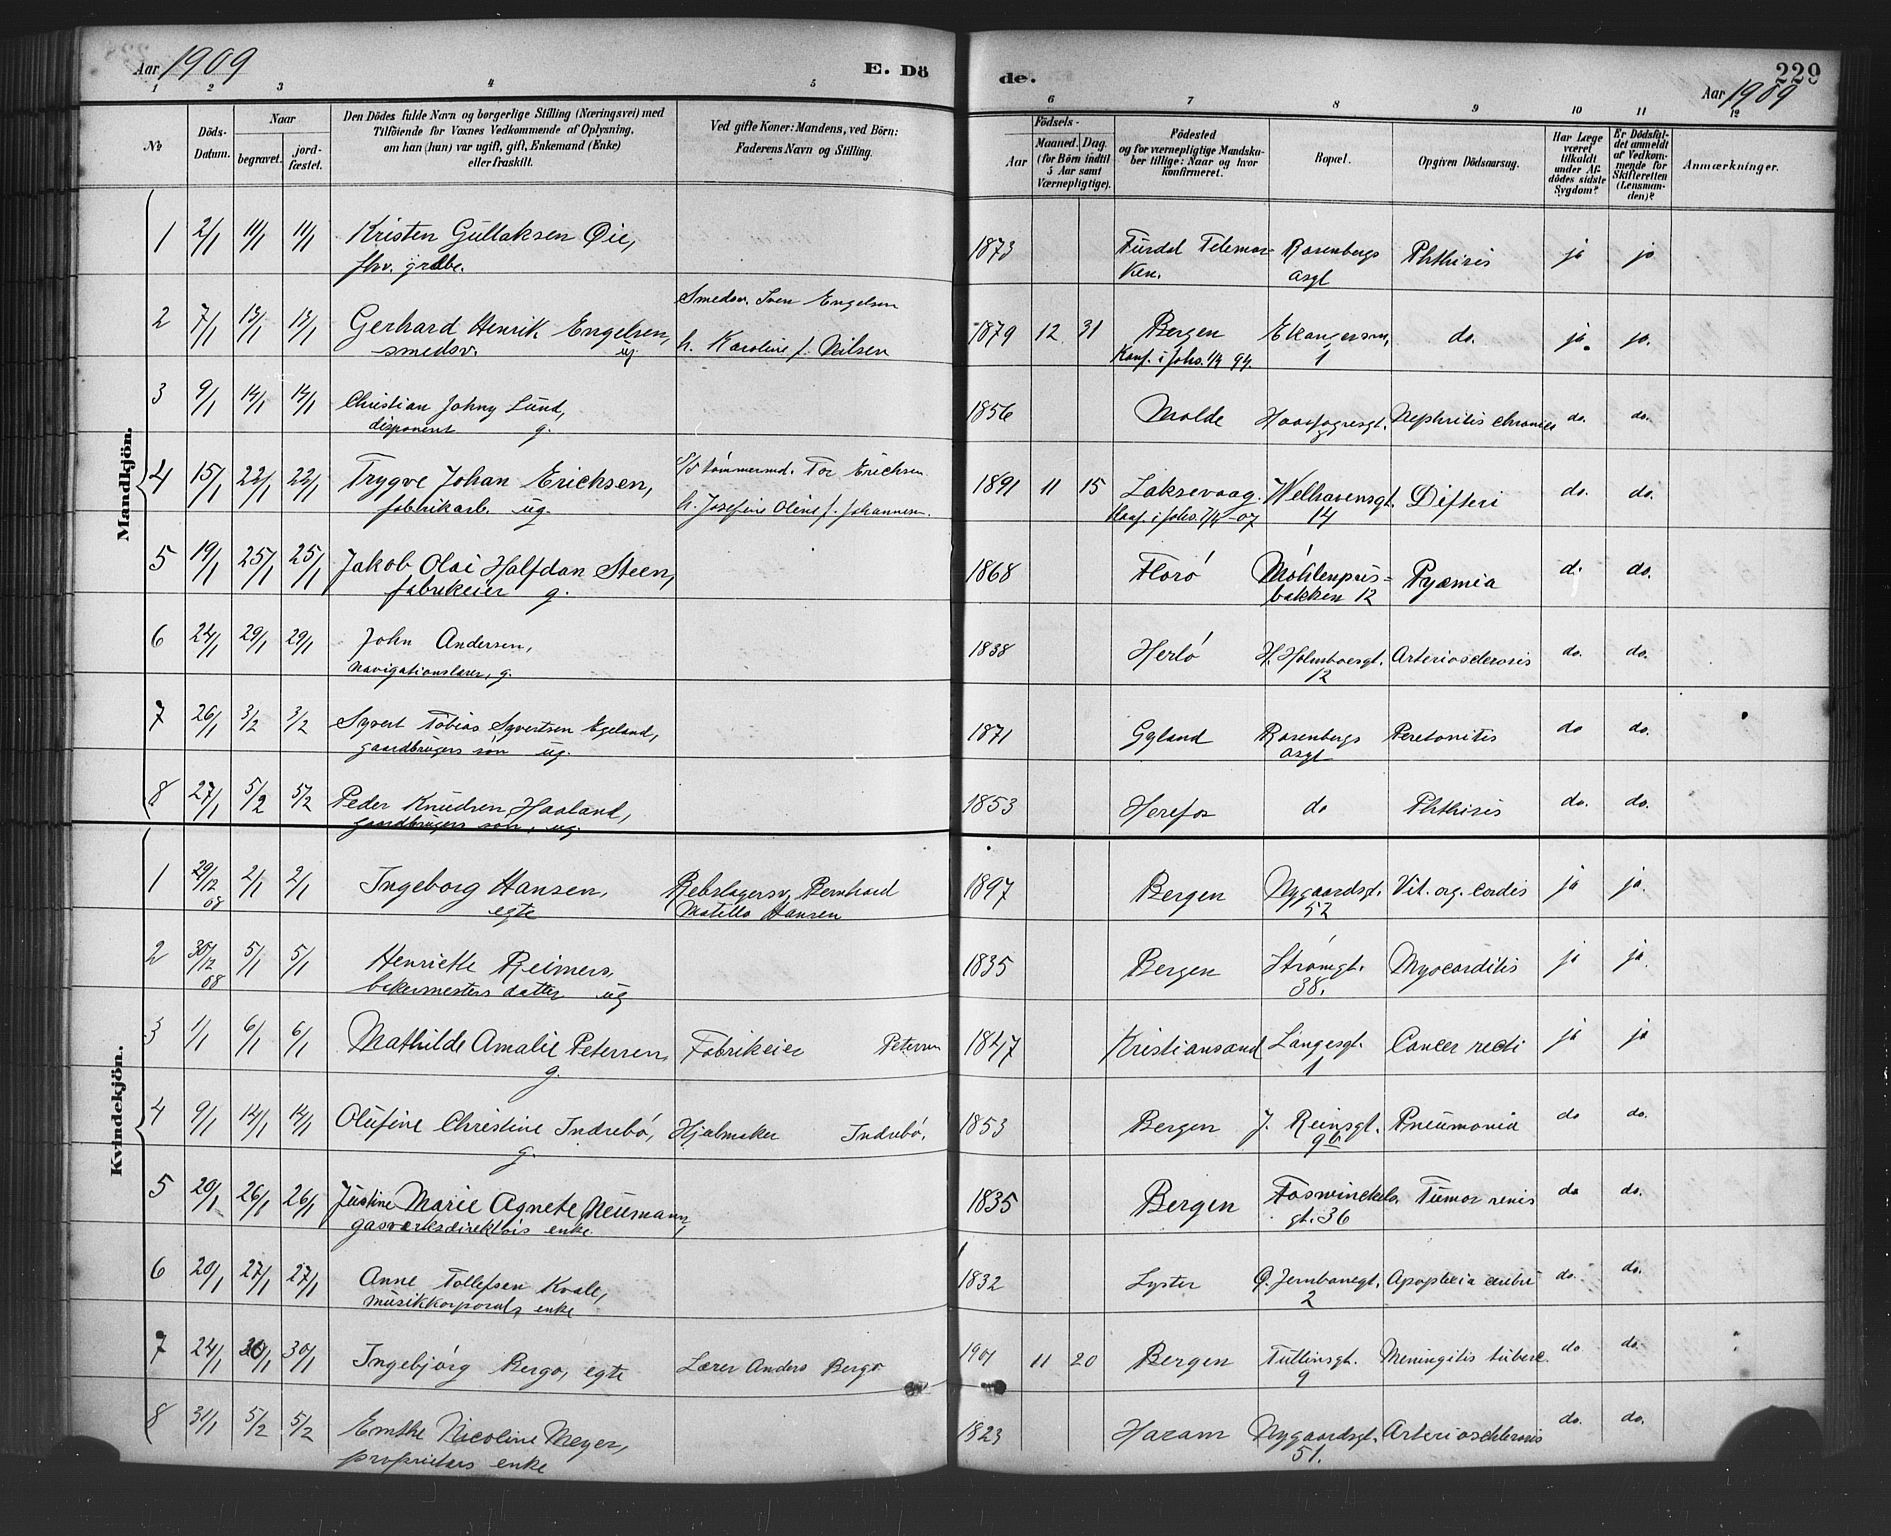 Aar 1909
E. Dö
de.
229
Aar 1909
1 2 3 4 5 6 7 8 9 10 11 12
No
Döds-Datum.
Naar
begravet.
jord-fæstet.
Den Dödes fulde Navn og borgerlige Stilling (Næringsvei) med
Tilföiende for Voxnes Vedkommende af Oplysning,
om han (hun) var ugift, gift, Enkemand (Enke)
eller fraskilt.
Ved gifte Koner: Mandens, ved Börn:
Faderens Navn og Stilling.
Födsels-
Aar
Maaned. Dag.
(for Börn indtil
5 Aar samt
Værnepligtige).
Födested
og for værnepligtige Mandska-
ber tillige: Naar og hvor
konfirmeret.
Bopæl.
Opgiven Dödsaarsag.
Har Læge
været
tilkaldt
under Af-
dödes sidste
Sygdom?
Er Dödsfal-
det anmeldt
af Vedkom-
mende for
Skifteretten
(Lensman-
den)?
Anmærkninger.
Mandkjön.
1 2/1 11/1 11/1 Kristen Gullaksen Öie, 1873 Tirdal Telemar- Rosenbergs Phthisis ja ja
fhv. ken. asgt
2 7/1 13/1 13/1 Gerhard Henrik Engelsen, Smedsv. Sven Engelsen 1879 12 31 Bergen 1 do. ja. jo.
smedsv. ug. h. Karoline f. Nilsen Konf. i Johs. 1/4 94.
3 9/1 14/1 14/1 Christian Johny Lund, 1856 Molde Haarfagresgt. Nephritis chronica do. do.
disponent g.
4 15/1 22/1 22/1 Trygve Johan Erichsen, tömmermd. Tor Erichsen 1891 11 15 Laksevaag. Welhavensgt. Difteri do. do.
fabrikarb. ug. h. Josefine Oline f. Johannesen. Konf. i Johs. 7/4-07 14
5 19/1 25/1 25/1 Jakob Olai Halfdan Steen, 1868 Florö Möhlenpris- Pyæmia do. do.
fabrikeier g. bakken 12
6 24/1 29/1 29/1 John Andersen, 1838 Herlö H. Holmboesgt. Arteriosclerosis do. do.
navigationslærer, g. 12
7 26/1 3/2 3/2 Syvert Tobias Syvertsen Egeland, 1871 Gyland Rosenbergs Peretonitis do do.
gaardbrugers sön ug. asgt
8 27/1 5/2 5/2 Peder Knudsen Haaland, 1853 Herefos do Phthisis do. do.
gaardbrugers sön, ug.
Kvindekjön.
1 29/12 08 2/1 2/1 Ingeborg Hansen, Rebslagersv. Bernhard 1897 Bergen Nygaardsgt. Vit. org. cordis ja ja.
egte Hansen 52
2 30/12 08 5/1 5/1 Henriette Reimers, 1835 Bergen Strömgt. Myocarditis ja ja.
bakermesters datter ug 38.
3 1/1 6/1 6/1 Mathilde Amalie Petersen, Fabrikeier Petersen 1847 Kristiansand Langesgt. Cancer recti ja ja
g. 1
4 9/1 14/1 14/1 Olufine Christine Indrebö, Hjulmaker Indrebö. 1853 Bergen J. Reinsgt. Pneumonia do do.
g. 9b
5 20/1 26/1 26/1 Justine Marie Agnete Neumann, 1835 Bergen Foswinckels Tumor renis do do.
gasverksdirektörs enke. gt. 36
6 20/1 27/1 27/1 Anne Tollefsen Kvale, 1832 Lyster Ö. Jernbanegt. Apoplexia cerebri do. do.
musikkorporals enke 2
7 24/1 30/1 30/1 Ingebjörg Bergo, egte Lærer Anders Bergo 1901 11 20 Bergen Tullinsgt. Meningitis tuberc. do do.
9
8 31/1 5/2 5/2 Nicoline Meyer, 1823 Haram Nygaardsgt. Arterioschlerosis do. do.
proprietærs enke 51.